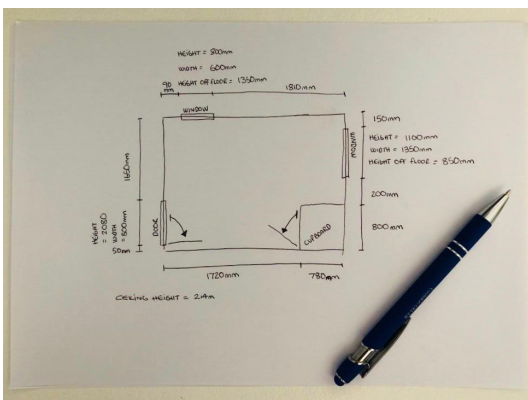 HEIGHT = 800mm
WIDTH = 600mm
HEIGHT OFF FLOOR = 1350mm
90
mm
1810mm
WINDOW
150mm
HEIGHT = 1100mm
WIDTH = 1350mm
HEIGHT OFF FLOOR = 850mm
WINDOW
1650mm
200mm
HEIGHT
= 2080
WIDTH
= 800mm
DOOR
CUPBOARD
800mm
50mm
1720mm
780mm
CEILING HEIGHT = 2.4m